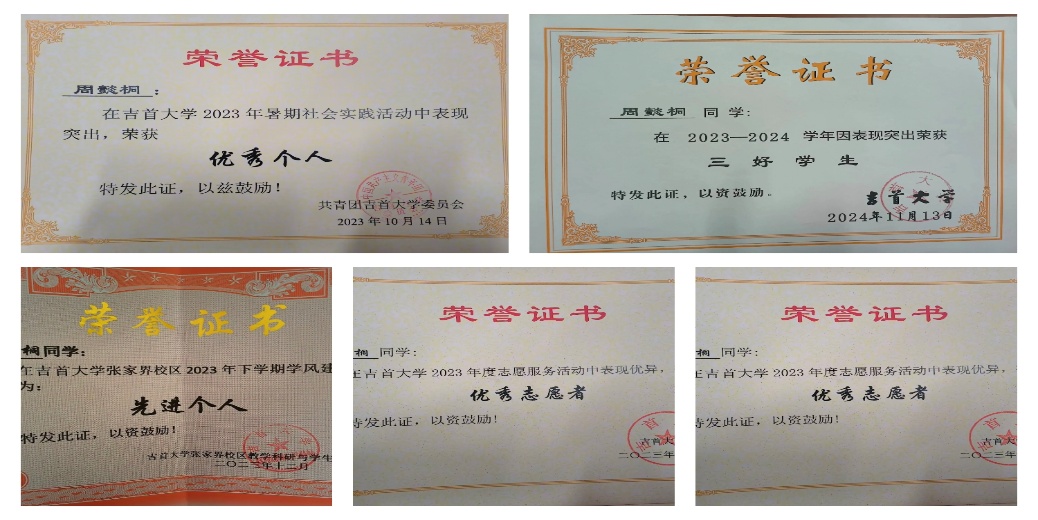 荣誉证书
周懿桐：
在吉首大学2023年暑期社会实践活动中表现
突出，荣获
优秀个人
特发此证，以兹鼓励！
共青团吉首大学委员会
2023年10月14日
荣誉证书
周懿桐 同学：
在 2023—2024 学年因表现突出荣获
三好学生
特发此证，以资鼓励。
吉首大学
2024年11月13日
荣誉证书
桐同学：
在吉首大学张家界校区2023年下学期学风建
为：
先进个人
特发此证，以资鼓励！
吉首大学张家界校区教学科研与学生
二〇二三年十二月
荣誉证书
桐 同学：
在吉首大学2023年度志愿服务活动中表现优异，
优秀志愿者
特发此证，以资鼓励！
吉首大
二〇二三年
荣誉证书
桐 同学：
在吉首大学2023年度志愿服务活动中表现优异，
优秀志愿者
特发此证，以资鼓励！
吉首大
二〇二三年